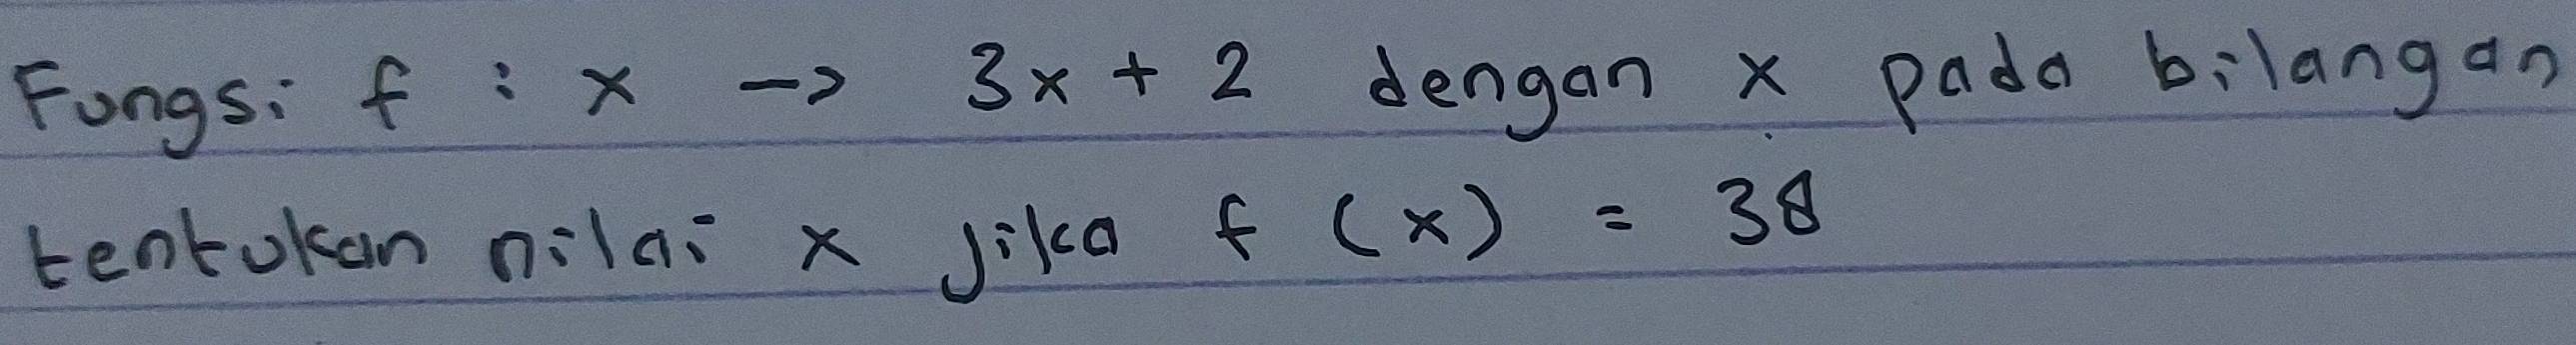 Fungsi f : x -> 3x + 2 dengan x pada bilangan
tentukan nilai x jika f (x) = 38